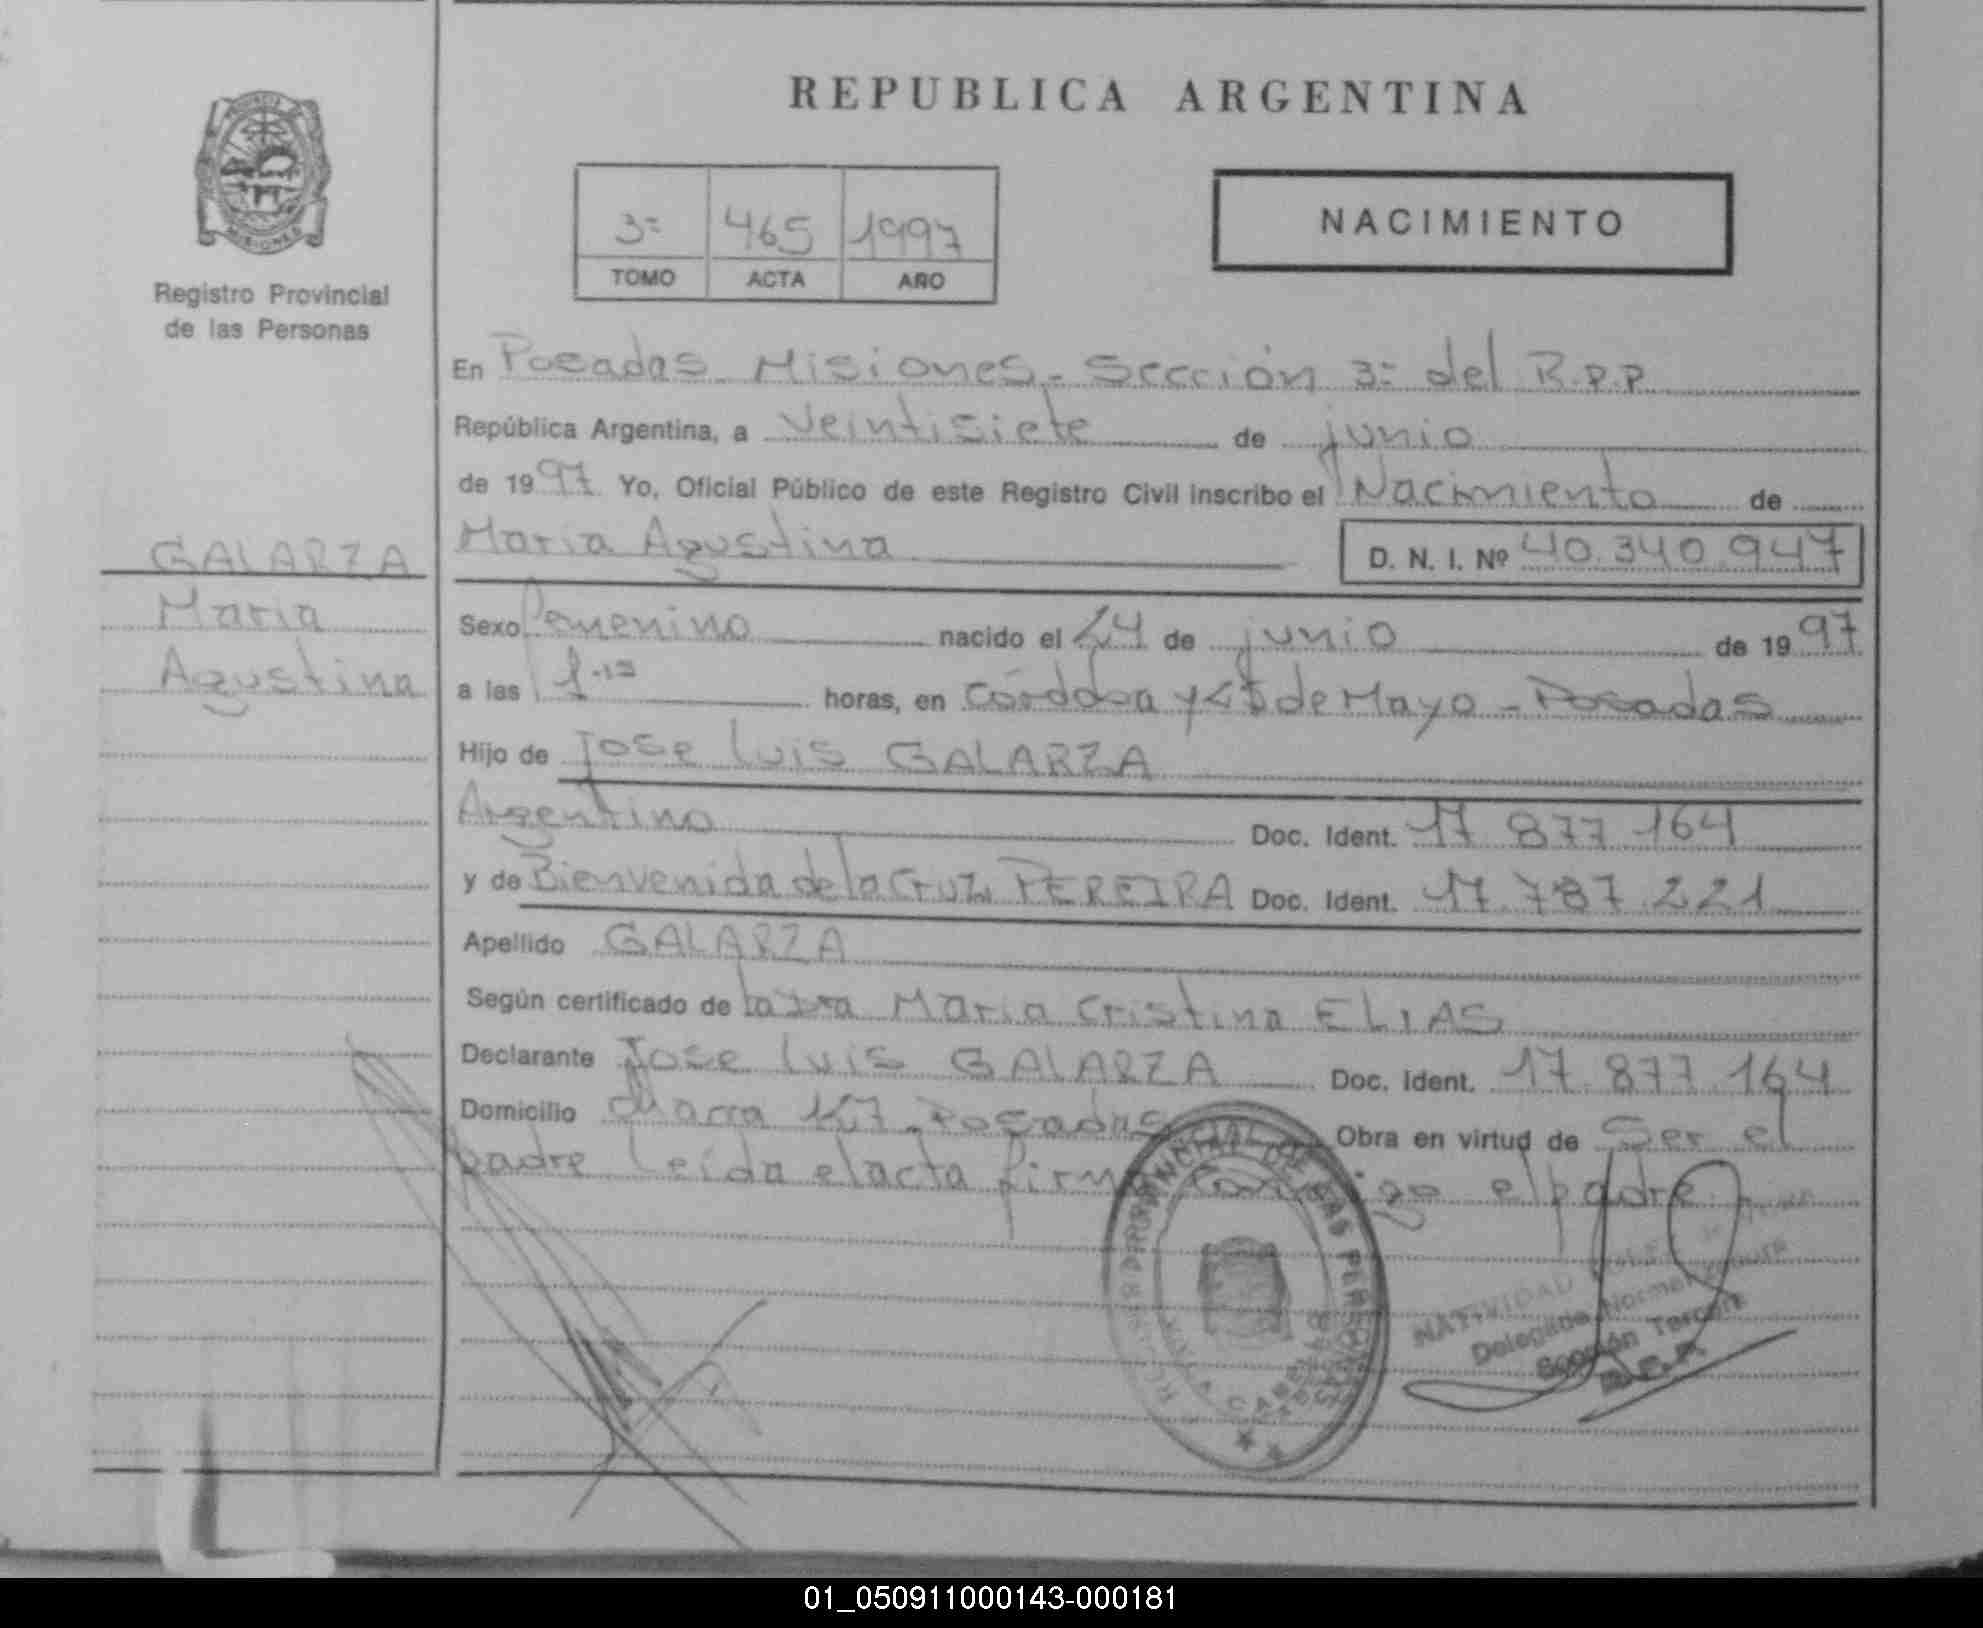 REPUBLICA ARGENTINA
MISIONES
Registro Provincial
de las Personas
3º 465 1997
TOMO ACTA AÑO
NACIMIENTO
En Posadas Misiones - Sección 3º del R.P.P
República Argentina, a veintisiete de junio
de 1997 Yo, Oficial Público de este Registro Civil inscribo el Nacimiento de
Maria Agustina D. N. I. Nº 40.340.947
GALARZA
Maria
Agustina
Sexo femenino nacido el 24 de junio de 1997
a las horas, en Córdoba y 25 de Mayo - Posadas
Hijo de Jose Luis GALARZA
Argentino Doc. Ident. 17 877 164
y de Bienvenida de la Cruz PEREIRA Doc. Ident. 17.787.221
Apellido GALARZA
Según certificado de la Dra Maria Cristina ELIAS
Declarante Jose Luis GALARZA Doc. Ident. 17.877.164
Domicilio chacra 147 - Posadas Obra en virtud de Ser el
padre Leída el acta firma conmigo el padre
NATIVIDAD
Delegada Normalizadora
Sección Tercera
R.P.P.
01_050911000143-000181